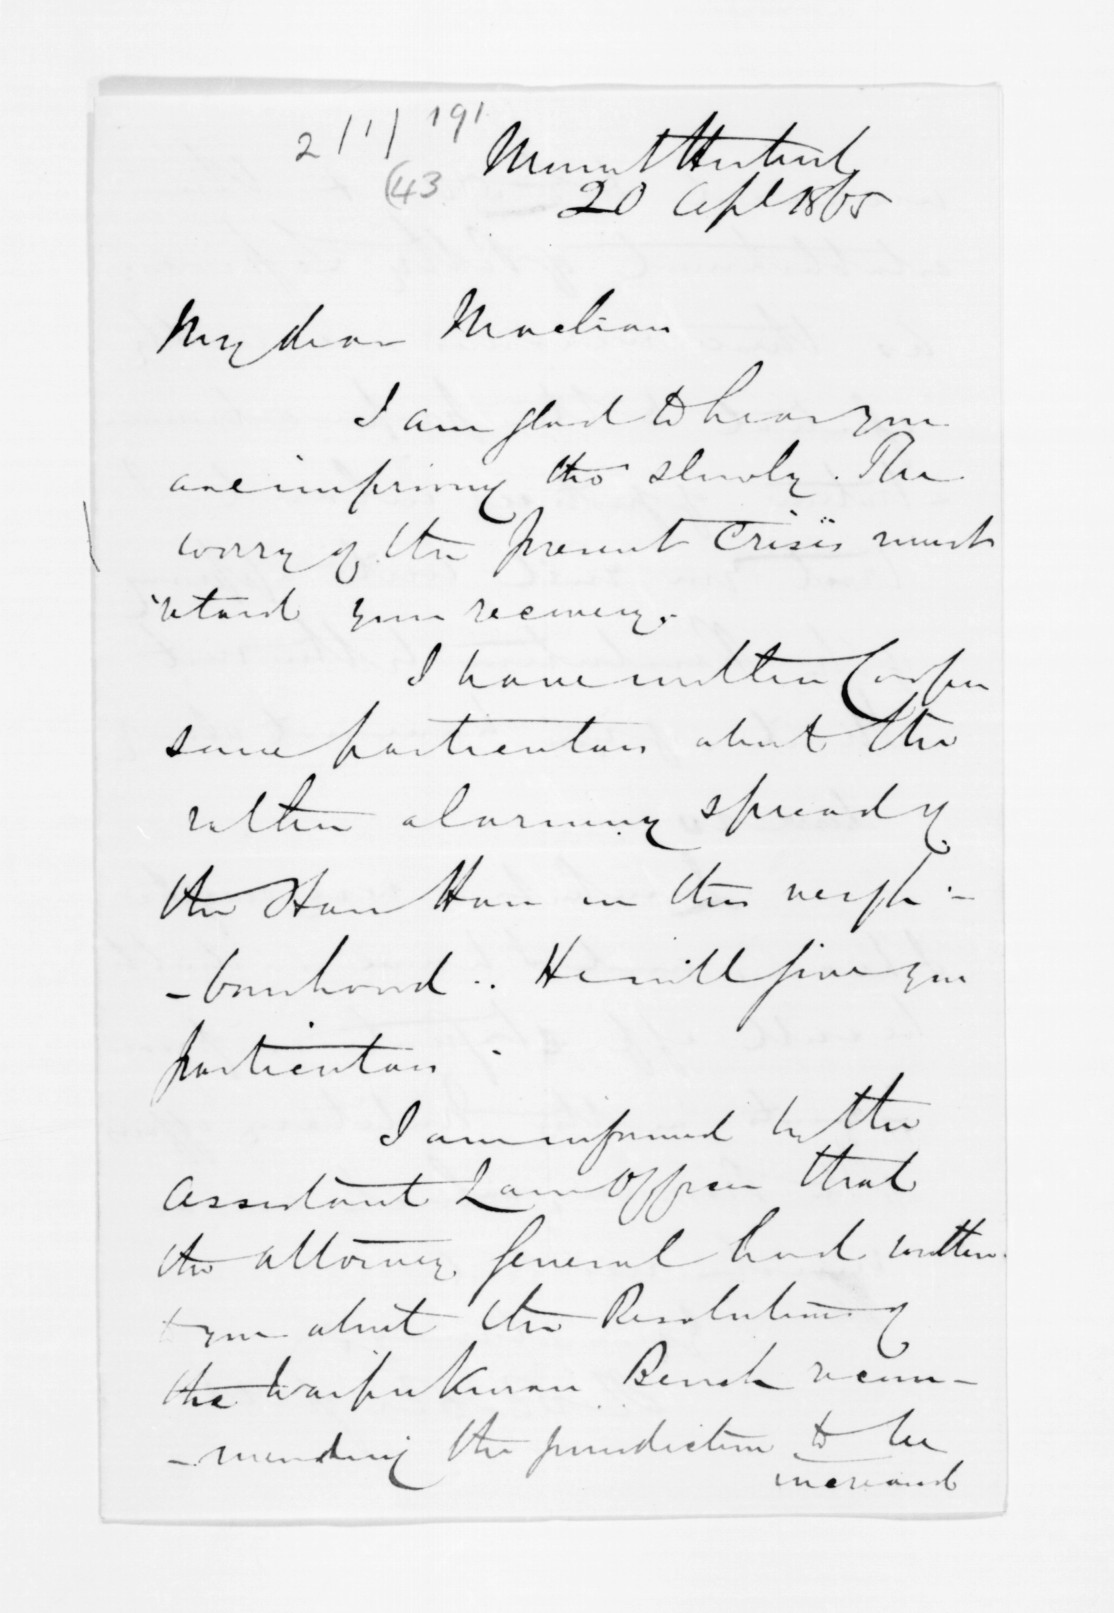 2/1/ 191
(43
Mount Herbert
20 Apl 1865
My dear Maclean
I am glad to hear you
are improving tho' slowly. The
worry of the present crisis must
retard your recovery.
I have written Cooper
some particulars about the
rather alarming spread of
the Hau Hau in this neigh-
-bourhood.. He will give you
particulars.
I am informed by the
Assistant Law Officer that
the Attorney General had written
to you about the Resolution of
the Waipukurau Bench recom-
-mending the jurisdiction to be
increased